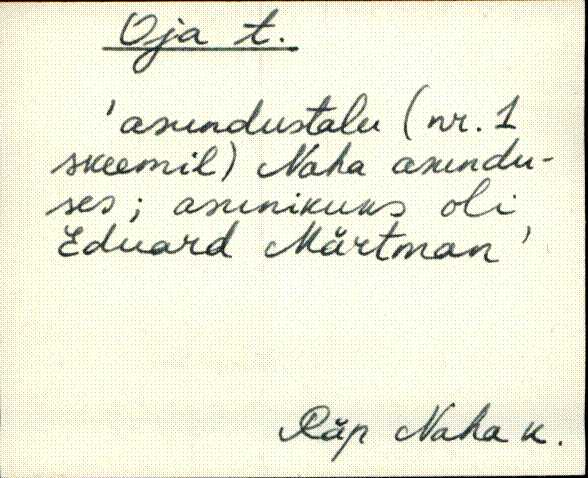 Oja t.
'asundustalu (nr. 1
skeemil) Naha asundu-
ses; asunikuks oli
Eduard Märtman'
Räp Naha k.